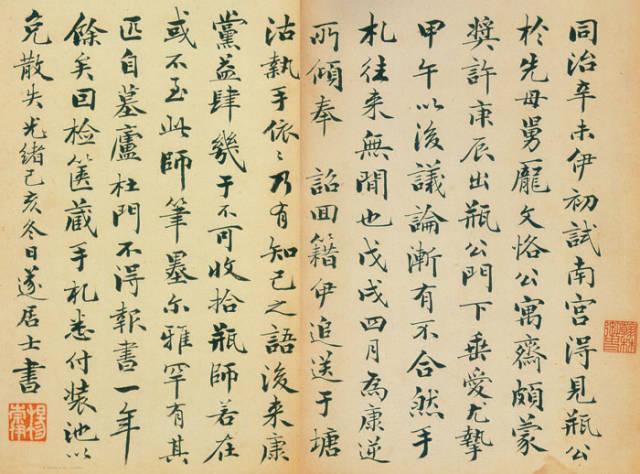 同治辛未伊初試南宮得見瓶公
於先母舅龐文恪公寓齋頗蒙
奬許庚辰出瓶公門下垂愛尤摯
甲午以後議論漸有不合然手
札往来無間也戊戌四月為康逆
所傾奉 詔回籍伊追送于塘
沽執手依〻乃有知己之語後来康
黨益肆幾于不可收拾瓶師若在
或不至此師筆墨尔雅罕有其
匹自墓廬杜門不得報書一年
餘矣因检篋藏手札悉付装池以
免散失光緒己亥冬日遂居士書